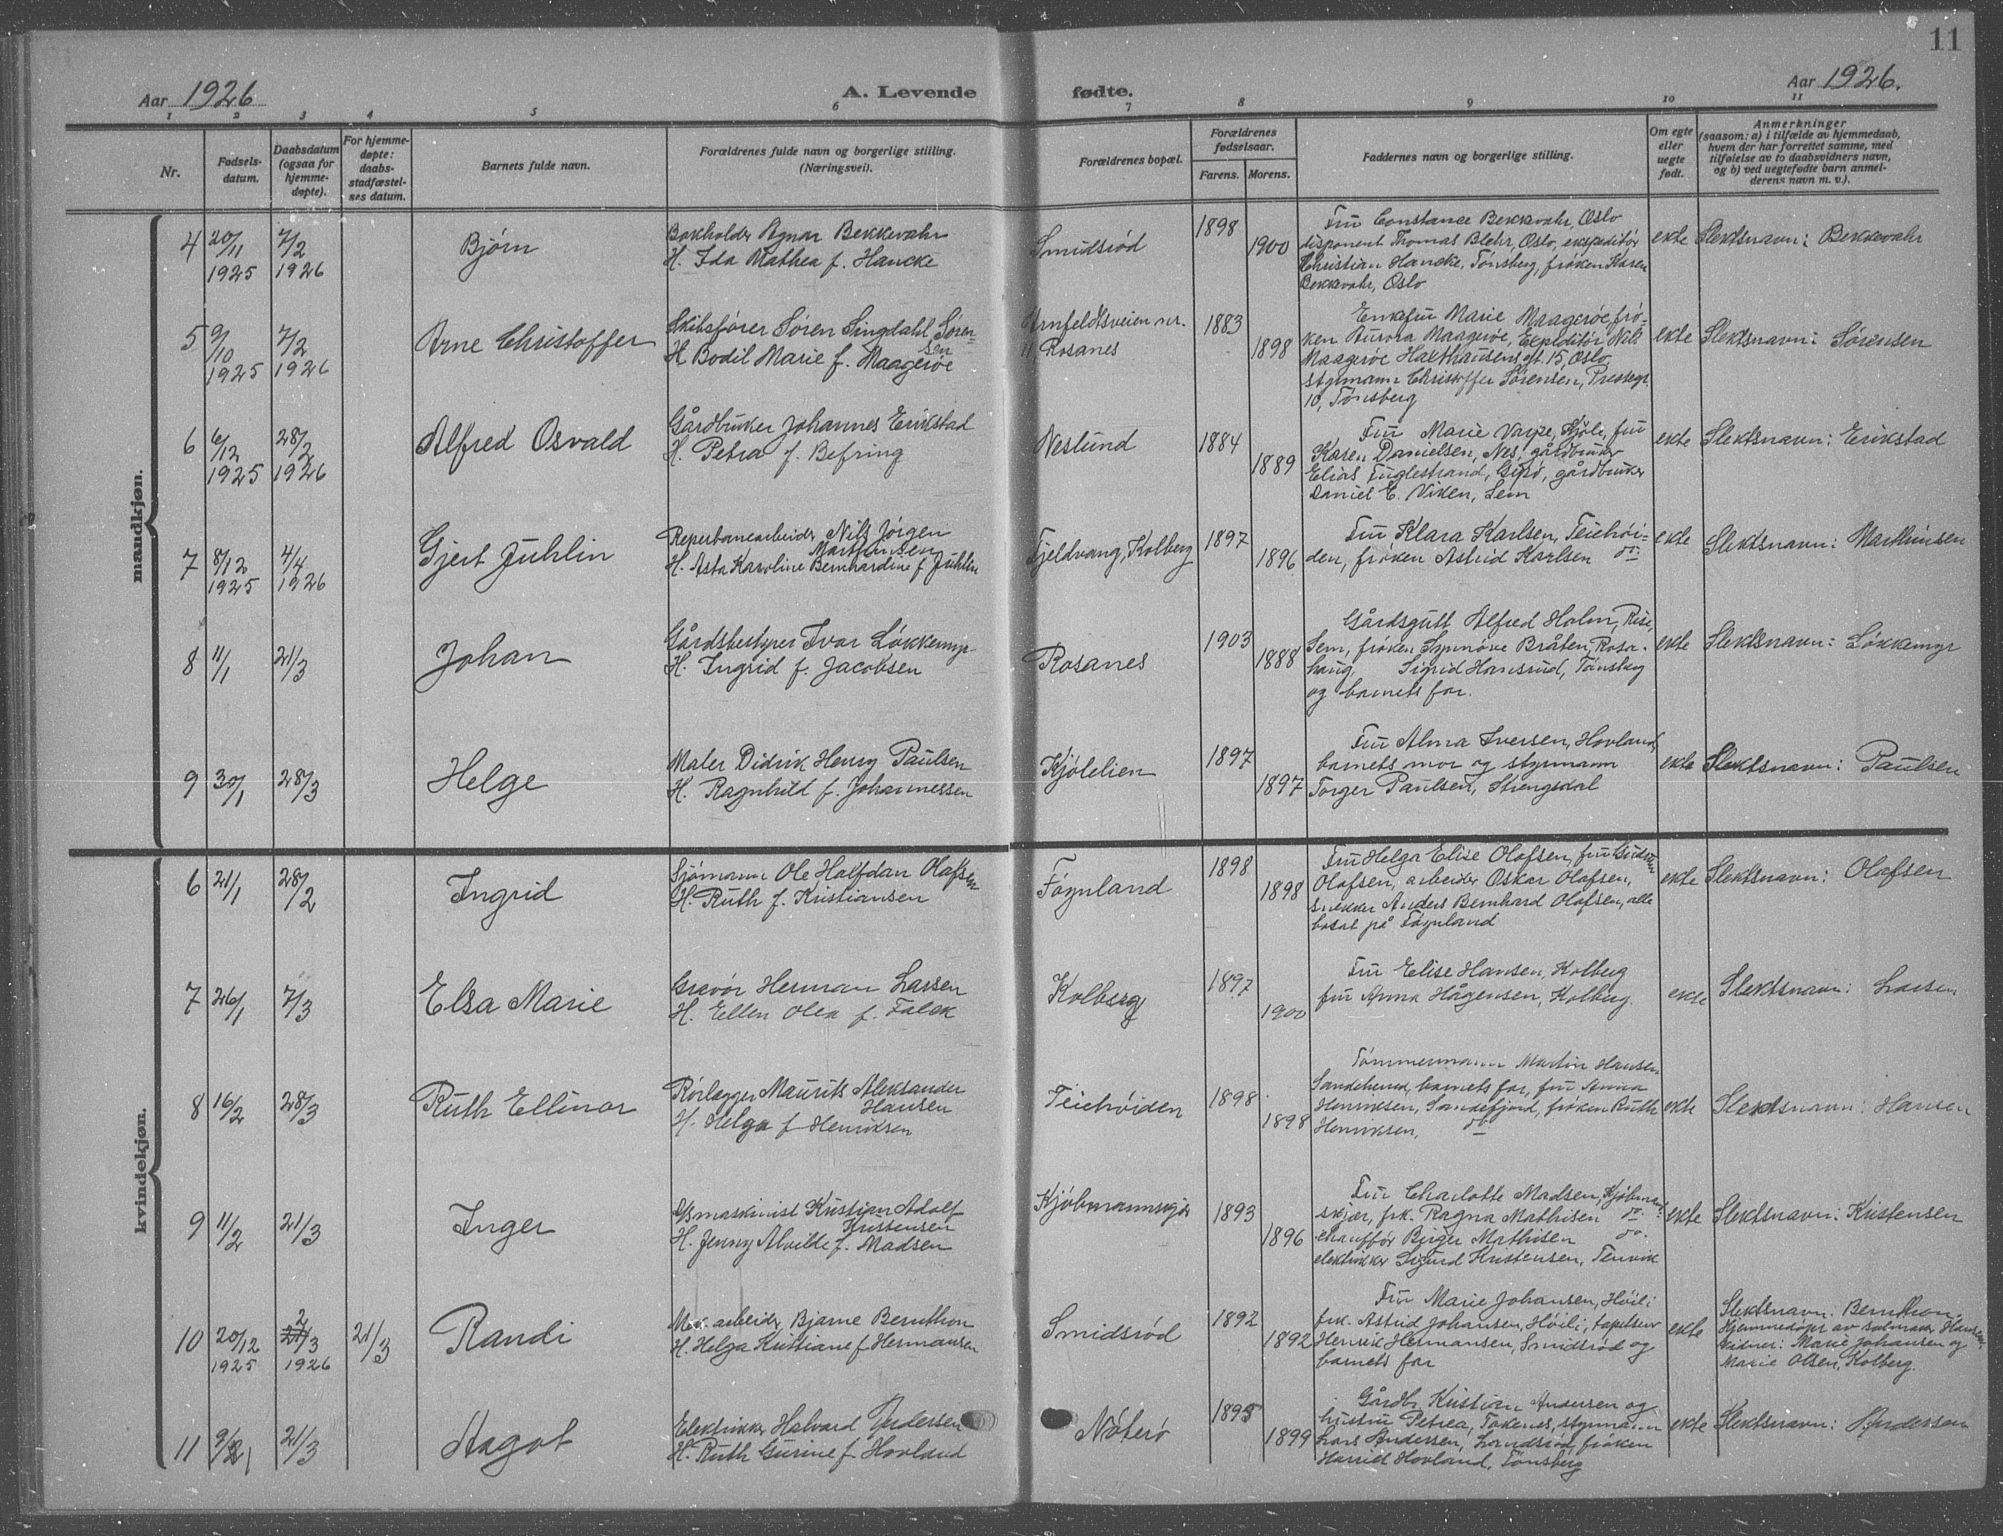 11
Aar 1926
A. Levende fødte.
Aar 1926.
1 2 3 4 5 6 7 8 9 10 11
Nr.
Fødsels-
datum.
Daabsdatum
(ogsaa for
hjemme-
døpte).
For hjemme-
døpte:
daabs-
stadfæstel-
ses datum.
Barnets fulde navn.
Forældrenes fulde navn og borgerlige stilling.
(Næringsvei).
Forældrenes bopæl.
Forældrenes
fødselsaar.
Farens. Morens.
Faddernes navn og borgerlige stilling.
Om egte
eller
uegte
født.
Anmerkninger
(saasom: a) i tilfælde av hjemmedaab,
hvem der har forrettet samme, med
tilføielse av to daabsvidners navn,
og b) ved uegtefødte barn anmel-
derens navn m. v.).
mandkjøn.
4 20/11 1925 7/2 1926
Bjørn
Bokholder Agnar Bekkevahr
H. Ida Mathea f. Hancke
Smidsrød
1898 1900
Fru Constance Bekkevahr, Oslo
disponent Thomas Blehr, Oslo, ekspeditør
Christian Hancke, Tønsberg, frøken Karen
Bekkevahr, Oslo
ekte
Slektsnavn: Bekkevahr
5 9/10 1925 7/2 1926
Arne Christoffer
Skibsfører Søren Lingdahl Søren-
sen
H Bodil Marie f. Maagerøe
Arnfeldtsveien nr.
11 Rosanes
1883 1898
Enkefru Marie Maagerøe, frø-
ken Aurora Maagerøe, Expeditør Nils
Maagerøe Haxthausensgt. 15, Oslo
styrmann Christoffer Sørensen, Prestegt
10, Tønsberg
ekte
Slektsnavn: Sørensen
6 6/12 1925 28/2 1926
Alfred Osvald
Gårdbruker Johannes Erikstad
H. Petra f. Befring
Neslund
1884 1889
Fru Marie Varpe, Kjøle, fru
Karen Danielsen, Nes, gårdbruker
Elias Fuglestrand, Gipø, gårdbruker
Daniel E. Viken, Sem
ekte
Slektsnavn: Erikstad
7 8/12 1925 4/4 1926
Gjert Juhlin
Reperbanearbeider Nils Jørgen
Marthinsen
H. Asta Karoline Bernhardine f Juhlin
Fjeldvang, Kolberg
1897 1896
Fru Klara Karlsen, Teiehøi-
den, frøken Astrid Karlsen do
ekte
Slektsnavn: Marthinsen
8 11/1 21/3
Johan
Gårdsbestyrer Ivar Løkkemyr
H. Ingrid f. Jacobsen
Rosanes
1903 1888
Gårdsgutt Alfred Holm, Rise,
Sem, frøken Synnøve Bråten, Rosa-
haug, Sigrid Hansrud, Tønsberg
og barnets far.
ekte
Slektsnavn: Løkkemyr
9 30/1 28/3
Helge
Maler Didrik Henry Paulsen
H. Ragnhild f. Johannessen
Kjølelien
1897 1897
Fru Alma Iversen, Hovland,
barnets mor og styrmann
Torger Paulsen, Strengsdal
ekte
Slektsnavn: Paulsen
kvindekjøn.
6 21/1 28/2
Ingrid
Sjømann Ole Halfdan Olafsen
H. Ruth f. Kristiansen
Føynland
1898 1898
Fru Helga Elise Olafsen, fru Gudrun
Olafsen, arbeider Oskar Olafsen,
snekker Anders Bernhard Olafsen, alle
bosat på Føynland
ekte
Slektsnavn: Olafsen
7 26/1 7/3
Elsa Marie
Gravør Herman Larsen
H. Ellen Olea f. Falck
Kolberg
1897 1900
Fru Elise Hansen, Kolberg
fru Anna Hågensen, Kolberg.
ekte
Slektsnavn: Larsen
8 16/2 28/3
Ruth Ellinor
Rørlegger Maurits Aleksander
Hansen
H. Helga f Henriksen
Teiehøiden
1898 1898
Tømmermann Martin Hansen
Sandeherred, barnets far, fru Anna
Henriksen, Sandefjord, frøken Ruth
Henriksen, do
ekte
Slektsnavn: Hansen
9 11/2 21/3
Inger
D/Smaskinist Kristian Adolf
Kristensen
H. Jenny Alvilde f. Madsen
Kjøbmannskjær
1893 1896
Fru Charlotte Madsen, Kjøbmans
skjær, frk. Ragna Mathisen do
chauffør Birger Mathisen do.
elektrikker Sigurd Kristensen, Tenvik
ekte
Slektsnavn: Kristensen
10 20/12 1925 2/3 1926 21/3
Randi
Mek. arbeider Bjarne Bernthon
H. Helga Kristiane f Hermansen
Smidsrød
1892 1892
Fru Marie Johansen, Høili
frk. Astrid Johansen, Høili, tapetserer
Henrik Hermansen, Smidsrød og
barnets far
ekte
Slektsnavn: Bernthon.
Hjemmedøpt av salmaker Hansen.
Vidner: Marie Johansen og
Marie Olsen, Kolberg.
11 9/1 21/3
Aagot
Elektrikker Halvard Andersen
H. Ruth Gurine f. Hovland
Nøterø
1895 1899
Gårdb. Kristian Andersen og
hustru Petrea, Tokenes, styrmann
Lars Andersen, Landsrød, frøken
Harriet Hovland, Tønsberg
ekte
Slektsnavn: Andersen